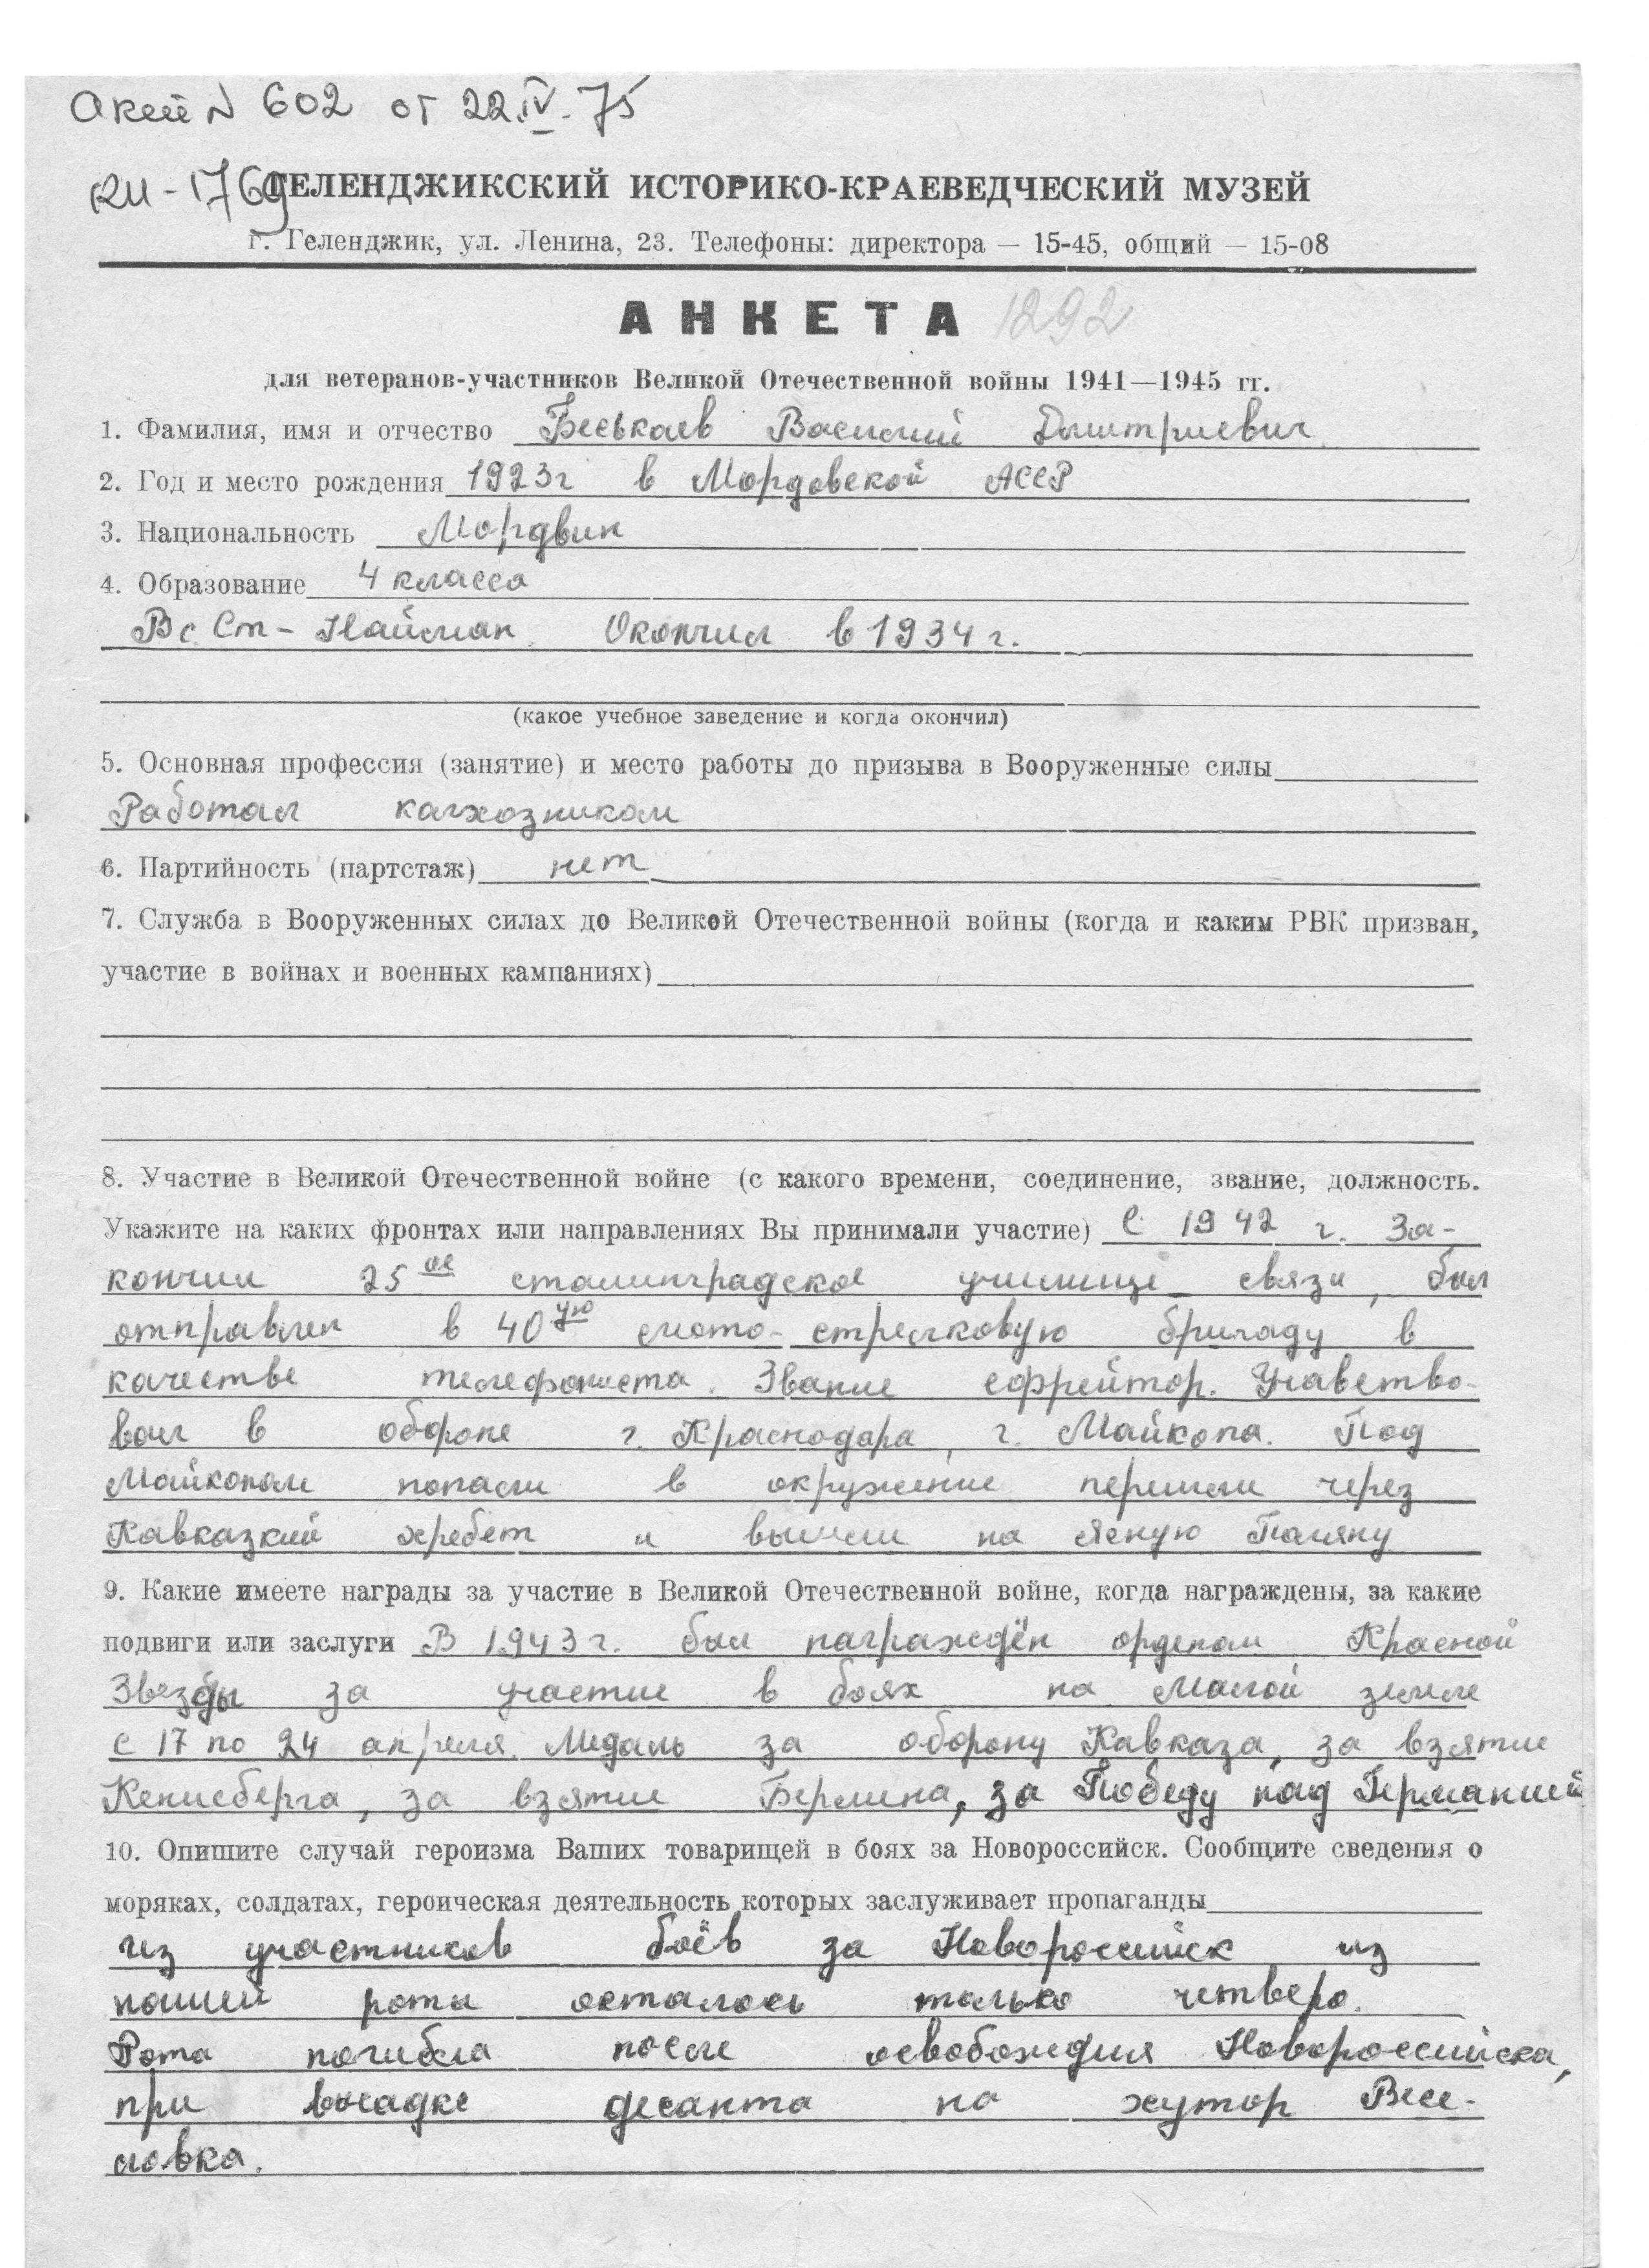 Акт N 602 от 22.IV.75
КП-1769
ГЕЛЕНДЖИКСКИЙ ИСТОРИКО-КРАЕВЕДЧЕСКИЙ МУЗЕЙ
г. Геленджик, ул. Ленина, 23. Телефоны: директора — 15-45, общий — 15-08
АНКЕТА 1292
для ветеранов-участников Великой Отечественной войны 1941—1945 гг.
1. Фамилия, имя и отчество Беськаев Василий Дмитриевич
2. Год и место рождения 1923г в Мордовской АССР
3. Национальность Мордвин
4. Образование 4 класса
В с. Ст-Найман. Окончил в 1934 г.
(какое учебное заведение и когда окончил)
5. Основная профессия (занятие) и место работы до призыва в Вооруженные силы
Работал калхозником
6. Партийность (партстаж) нет
7. Служба в Вооруженных силах до Великой Отечественной войны (когда и каким РВК призван,
участие в войнах и военных кампаниях)
8. Участие в Великой Отечественной войне (с какого времени, соединение, звание, должность.
Укажите на каких фронтах или направлениях Вы принимали участие) С 1942 г. За-
кончил 25ое сталинградское училище связи, был
отправлен в 40ую мото-стрелковую бригаду в
качестве телефониста. Звание ефрейтор. Учавство-
вал в обороне г. Краснодара, г. Майкопа. Под
Майкопом попали в окружение перешли через
Кавказкий хребет и вышли на Ясную Поляну
9. Какие имеете награды за участие в Великой Отечественной войне, когда награждены, за какие
подвиги или заслуги В 1943 г. был награждён орденом Красной
Звезды за участие в боях на Малой земле
с 17 по 24 апреля. Медаль за оборону Кавказа, за взятие
Кенисберга, за взятие Берлина, за Победу над Германией
10. Опишите случай героизма Ваших товарищей в боях за Новороссийск. Сообщите сведения о
моряках, солдатах, героическая деятельность которых заслуживает пропаганды
из участников боёв за Новороссийск из
нашей роты осталось только четверо.
Рота погибла после освобождия Новороссийска,
при высадке десанта на хутор Весе-
ловка.